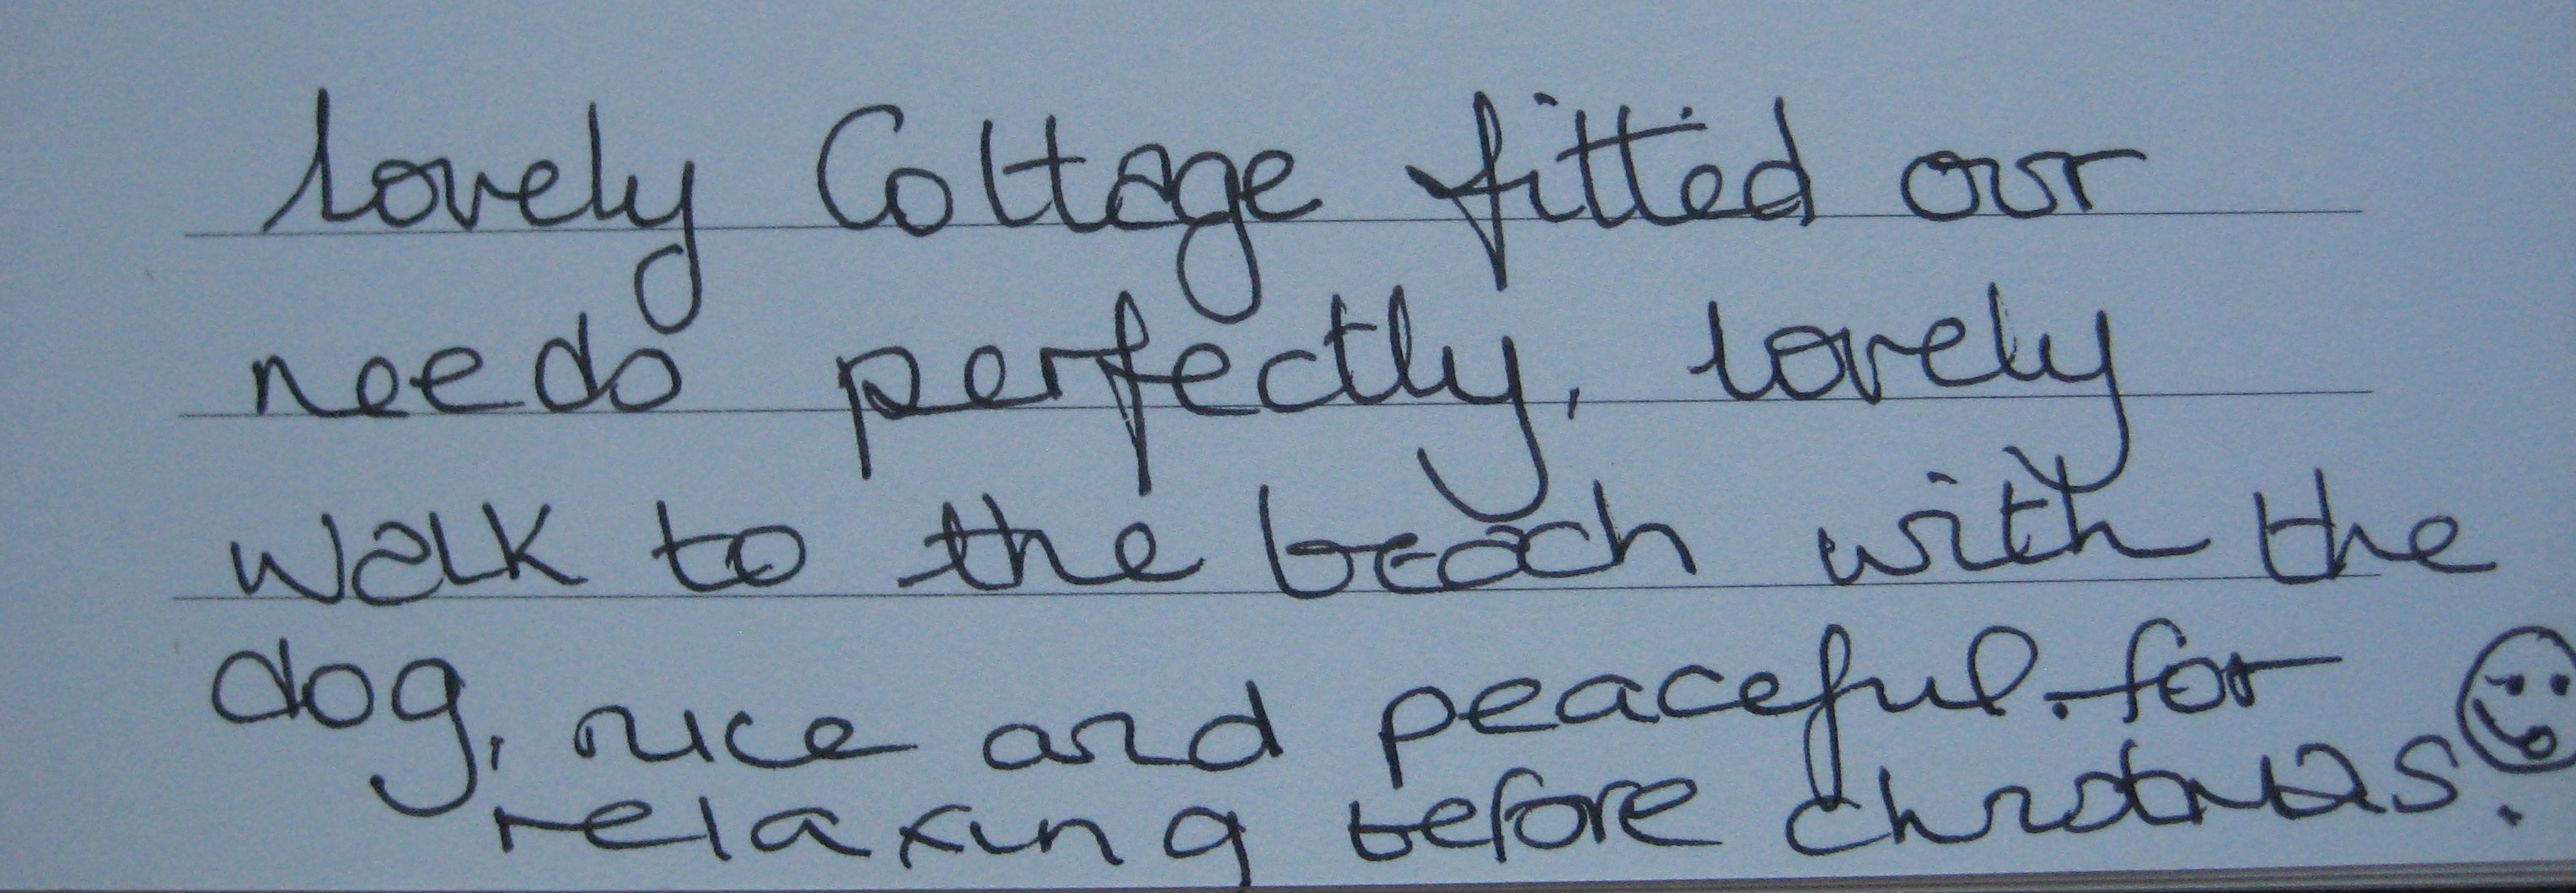 lovely Cottage fitted our
needs perfectly, lovely
walk to the beach with the
dog, nice and peaceful. for
relaxing before christmas.